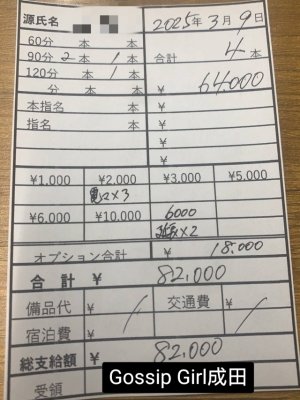 源氏名
2025年3月9日
60分 本 本
90分 2本 1本
合計 4本
120分 本 1本
¥ 64000
分 本 本
¥
本指名 ¥
指名 ¥
¥
¥1,000 ¥2,000 ¥3,000 ¥5,000
×3
¥6,000 ¥10,000 6000
×2
オプション合計 ¥ 18,000
合計 ¥ 82,000
備品代 ¥ / 交通費
宿泊費 ¥ ¥ /
総支給額 ¥ 82,000
受領
Gossip Girl成田